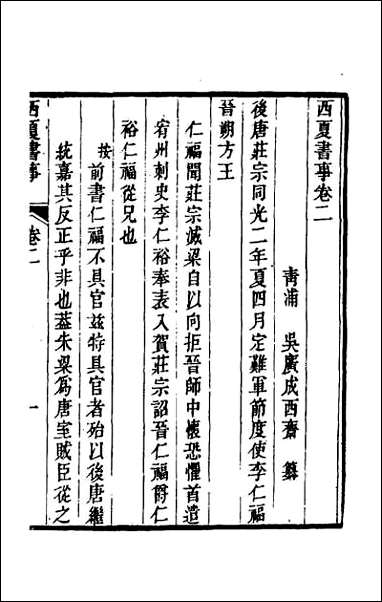 西夏書事卷二
青浦 吳廣成西齋 纂
後唐莊宗同光二年夏四月定難軍節度使李仁福
晉朔方王
仁福聞莊宗滅梁自以向拒晉師中懷恐懼首遣
宥州刺史李仁裕奉表入賀莊宗詔晉仁福爵仁
裕仁福從兄也
按前書仁福不具官茲特具官者殆以後唐繼
統嘉其反正乎非也蓋朱梁爲唐室賊臣從之
西夏書事 卷二 一